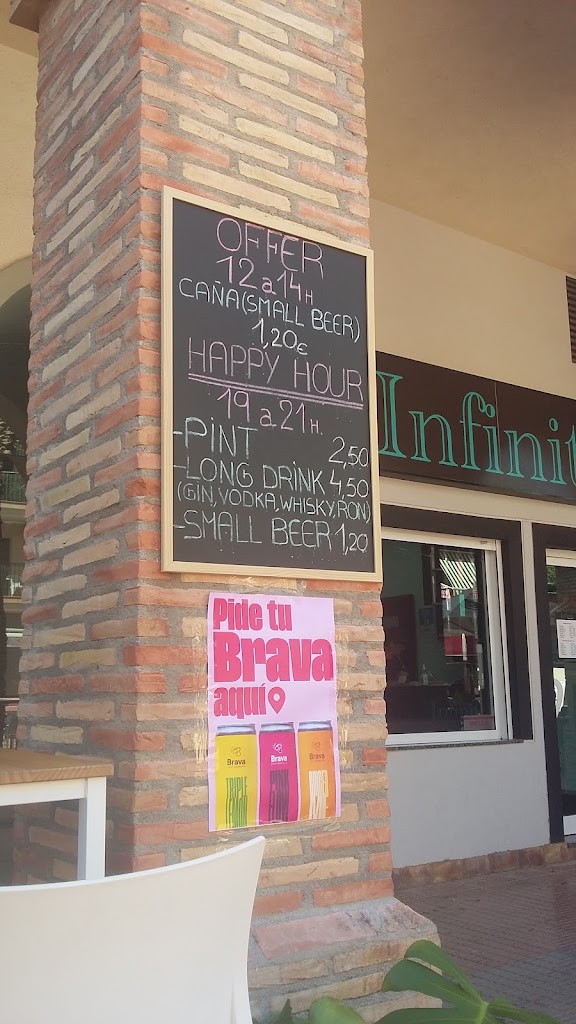 OFFER
12 a 14H
CAÑA(SMALL BEER)
1,20€
HAPPY HOUR
19 a 21H.
-PINT 2,50
-LONG DRINK 4,50
(GIN, VODKA, WHISKY, RON)
-SMALL BEER 1,20
Infinit
Pide tu
Brava
aquí
Brava
Brava
Brava